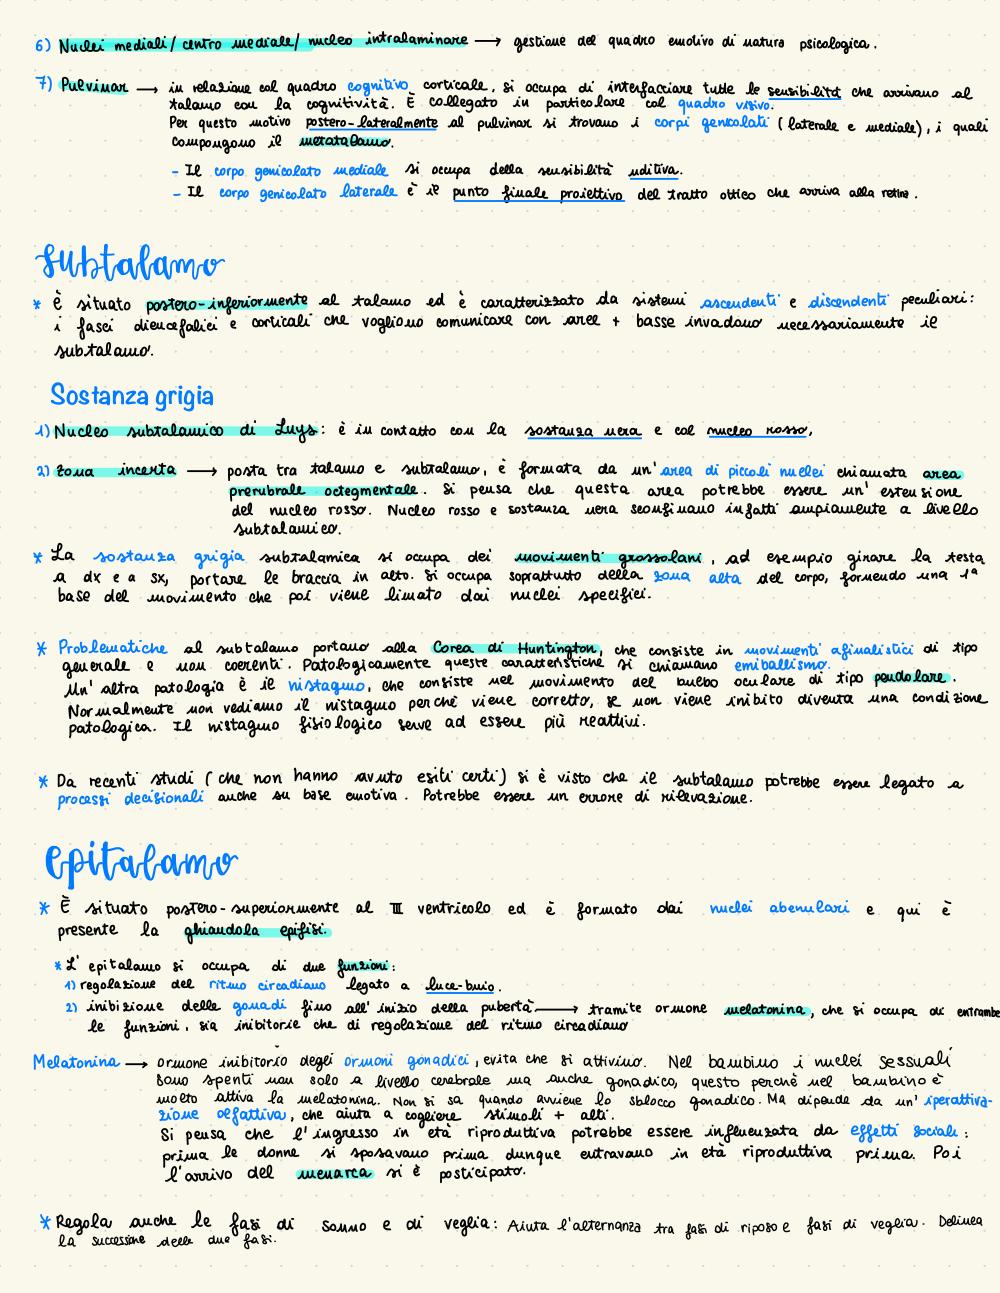 6) Nuclei mediali/ centro mediale/ nucleo intralaminare → gestione del quadro emotivo di natura psicologica.
7) Pulvinar → in relazione col quadro cognitivo corticale, si occupa di interfacciare tutte le sensibilità che arrivano al
talamo con la cognitività. È collegato in particolare col quadro visivo.
Per questo motivo postero-lateralmente al pulvinar si trovano i corpi genicolati (laterale e mediale), i quali
compongono il metatalamo.
- Il corpo genicolato mediale si occupa della sensibilità uditiva.
- Il corpo genicolato laterale è il punto finale proiettivo del tratto ottico che arriva alla retina.
Subtalamo
* È situato postero-inferiormente al talamo ed è caratterizzato da sistemi ascendenti e discendenti peculiari:
i fasci diencefalici e corticali che vogliono comunicare con aree + basse invadono necessariamente il
subtalamo.
Sostanza grigia
1) Nucleo subtalamico di Luys: è in contatto con la sostanza nera e col nucleo rosso,
2) Zona incerta → posta tra talamo e subtalamo, è formata da un'area di piccoli nuclei chiamata area
prerubrale octegmentale. Si pensa che questa area potrebbe essere un'estensione
del nucleo rosso. Nucleo rosso e sostanza nera sconfinano infatti ampiamente a livello
subtalamico.
* La sostanza grigia subtalamica si occupa dei movimenti grossolani, ad esempio girare la testa
a dx e a sx, portare le braccia in alto. Si occupa soprattutto della zona alta del corpo, fornendo una 1ª
base del movimento che poi viene limato dai nuclei specifici.
* Problematiche al subtalamo portano alla Corea di Huntington, che consiste in movimenti afinalistici di tipo
generale e non coerenti. Patologicamente queste caratteristiche si chiamano emiballismo.
Un'altra patologia è il nistagmo, che consiste nel movimento del bulbo oculare di tipo pendolare.
Normalmente non vediamo il nistagmo perchè viene corretto, se non viene inibito diventa una condizione
patologica. Il nistagmo fisiologico serve ad essere più reattivi.
* Da recenti studi (che non hanno avuto esiti certi) si è visto che il subtalamo potrebbe essere legato a
processi decisionali anche su base emotiva. Potrebbe essere un errore di rilevazione.
Epitalamo
* È situato postero-superiormente al III ventricolo ed è formato dai nuclei abenulari e qui è
presente la ghiandola epifisi.
* L'epitalamo si occupa di due funzioni:
1) regolazione del ritmo circadiano legato a luce-buio.
2) inibizione delle gonadi fino all'inizio della pubertà → tramite ormone melatonina, che si occupa di entrambe
le funzioni, sia inibitorie che di regolazione del ritmo circadiano
Melatonina → ormone inibitorio degli ormoni gonadici, evita che si attivino. Nel bambino i nuclei sessuali
sono spenti non solo a livello cerebrale ma anche gonadico, questo perchè nel bambino è
molto attiva la melatonina. Non si sa quando avviene lo sblocco gonadico. Ma dipende da un'iperattiva-
zione olfattiva, che aiuta a cogliere stimoli + alti.
Si pensa che l'ingresso in età riproduttiva potrebbe essere influenzata da effetti sociali:
prima le donne si sposavano prima dunque entravano in età riproduttiva prima. Poi
l'arrivo del menarca si è posticipato.
* Regola anche le fasi di sonno e di veglia: Aiuta l'alternanza tra fasi di riposo e fasi di veglia. Delinea
la successione delle due fasi.